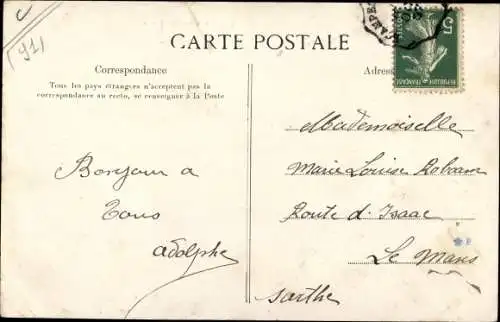 (91)
CARTE POSTALE
Correspondance
Tous les pays étrangers n'acceptent pas la
correspondance au recto, se renseigner à la Poste
Bonjour a
Tous
Adolphe
Adres
Mademoiselle
Marie Louise Roboam
Route d. Isaac
Le Mans
Sarthe
REPUBLIQUE FRANÇAISE